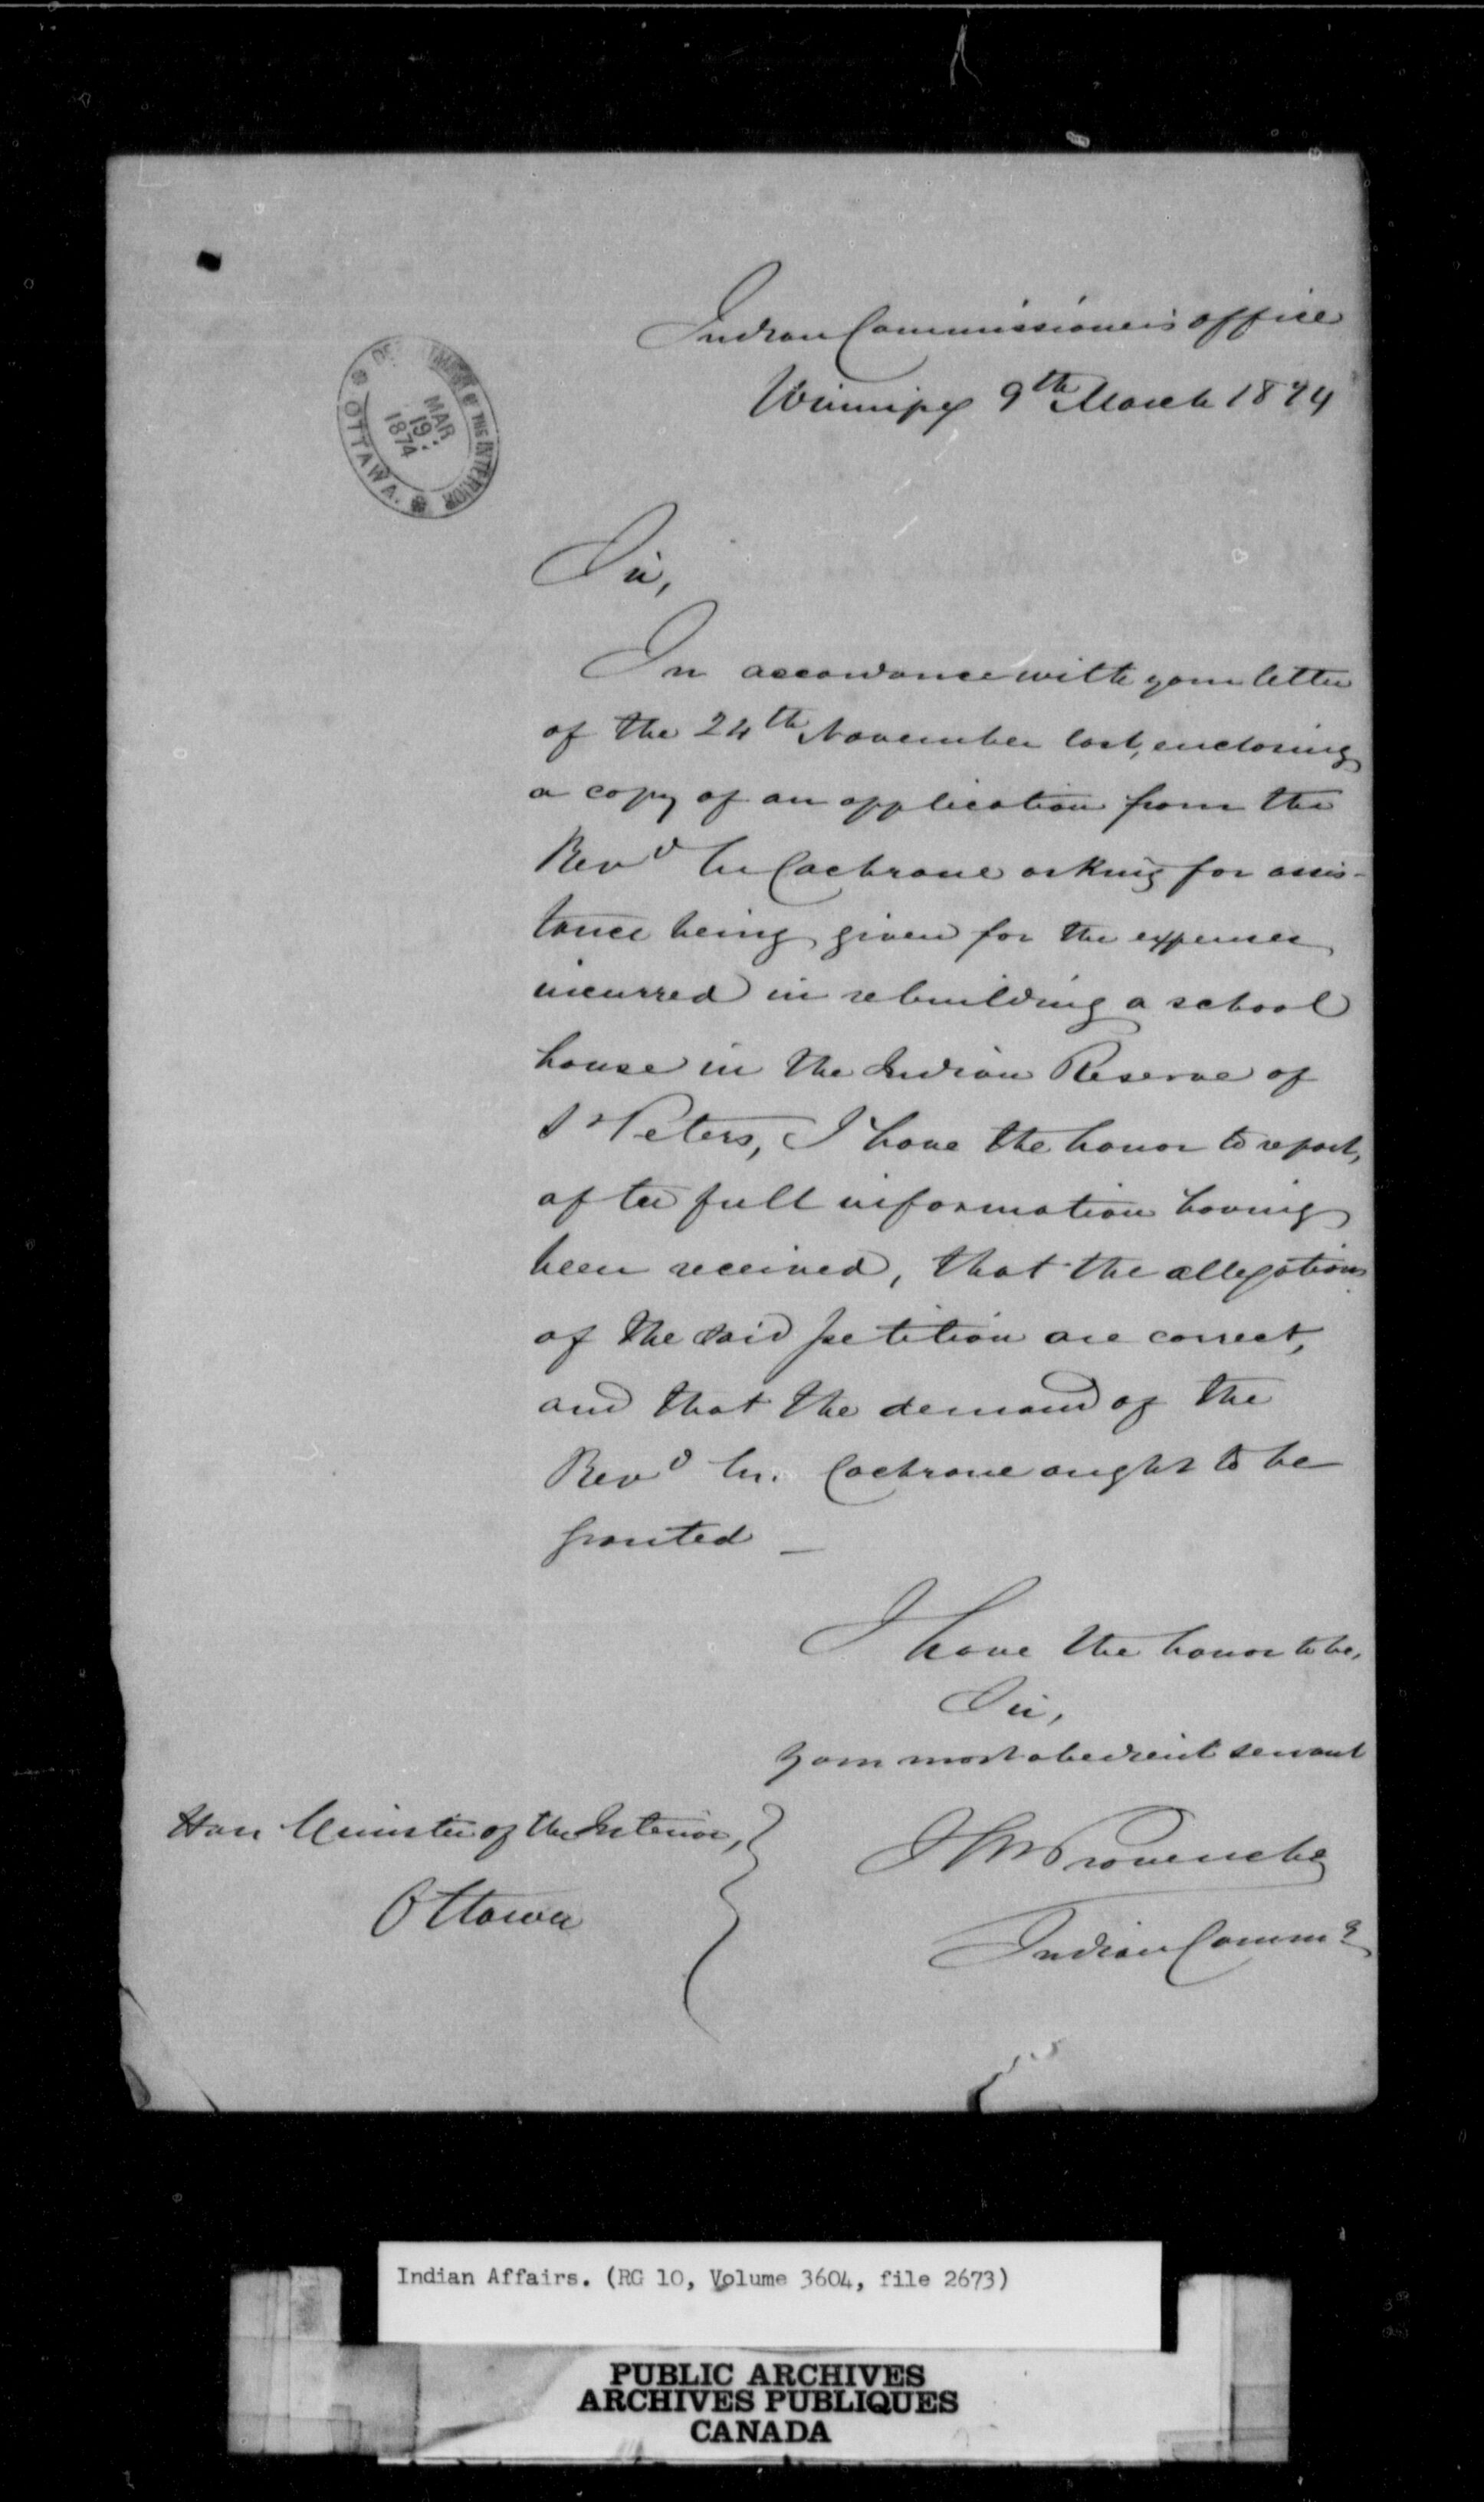 Indian Commissioner's office
Winnipeg 9th March 1874
DEPARTMENT OF THE INTERIOR
MAR
19
1874
OTTAWA.
Sir,
In accordance with your letter
of the 24th November last, enclosing
a copy of an application from the
Revd Mr Cochrane asking for assis-
tance being given for the expenses
incurred in rebuilding a school
house in the Indian Reserve of
St Peters, I have the honor to report,
after full information having
been received, that the allegations
of the said petition are correct,
and that the demand of the
Revd Mr. Cochrane ought to be
granted —
I have the honor to be,
Sir,
your most obedient servant
Hon Minister of the Interior,
Ottawa
JAN Provencher
Indian Commr
Indian Affairs. (RG 10, Volume 3604, file 2673)
PUBLIC ARCHIVES
ARCHIVES PUBLIQUES
CANADA